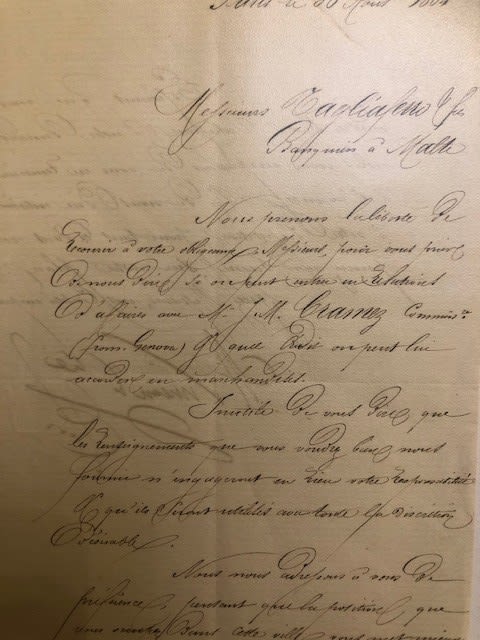 Paris le 30 Août 18
Messieurs Tagliaferro & fils
Banquiers à Malte
Nous prenons la liberté de
recourir à votre obligeance, Messieurs, pour vous prier
de nous dire si on peut entrer en relations
d'affaires avec Mr J. M. Cramez Commissre
(from. Genova) & quel crédit on peut lui
accorder en marchandises.
Inutile de vous dire que
les renseignements que vous voudrez bien nous
fournir n'engageront en rien votre responsabilité
& qu'ils seront utilisés avec toute la discrétion
désirable.
Nous nous adressons à vous de
préférence, pensant que la position que
vous dans cette ville vous